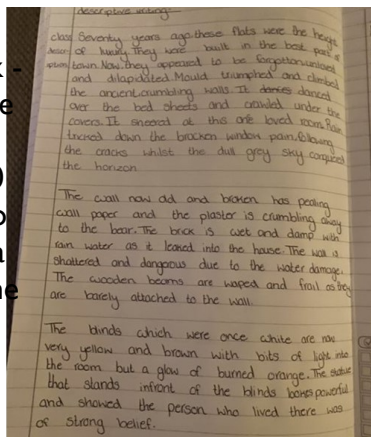 descriptive writing:
class Seventy years ago these flats were the height
descr- of luxury. They were built in the best part of
iption town. Now, they appeared to be forgotten, unloved
and dilapidated. Mould triumphed and climbed
the ancient, crumbling walls. It danced
over the bed sheets and crawled under the
covers. It sneered at this once loved room. Rain
tricked down the brocken window pain, following
the cracks whilst the dull grey sky conquered
the horizon
The wall now old and broken has peeling
wall paper and the plaster is crumbling away
to the boar. The brick is wet and damp with
rain water as it leaked into the house. The wall is
shattered and dangorous due to the water damage.
The wooden beams are waped and frail as they
are barely attached to the wall.
The blinds which were once white are now
very yellow and brown with bits of light into
the room but a glow of burned orange. The statue
that stands infront of the blinds powerful
and showed the person who lived there was
of strong belief.